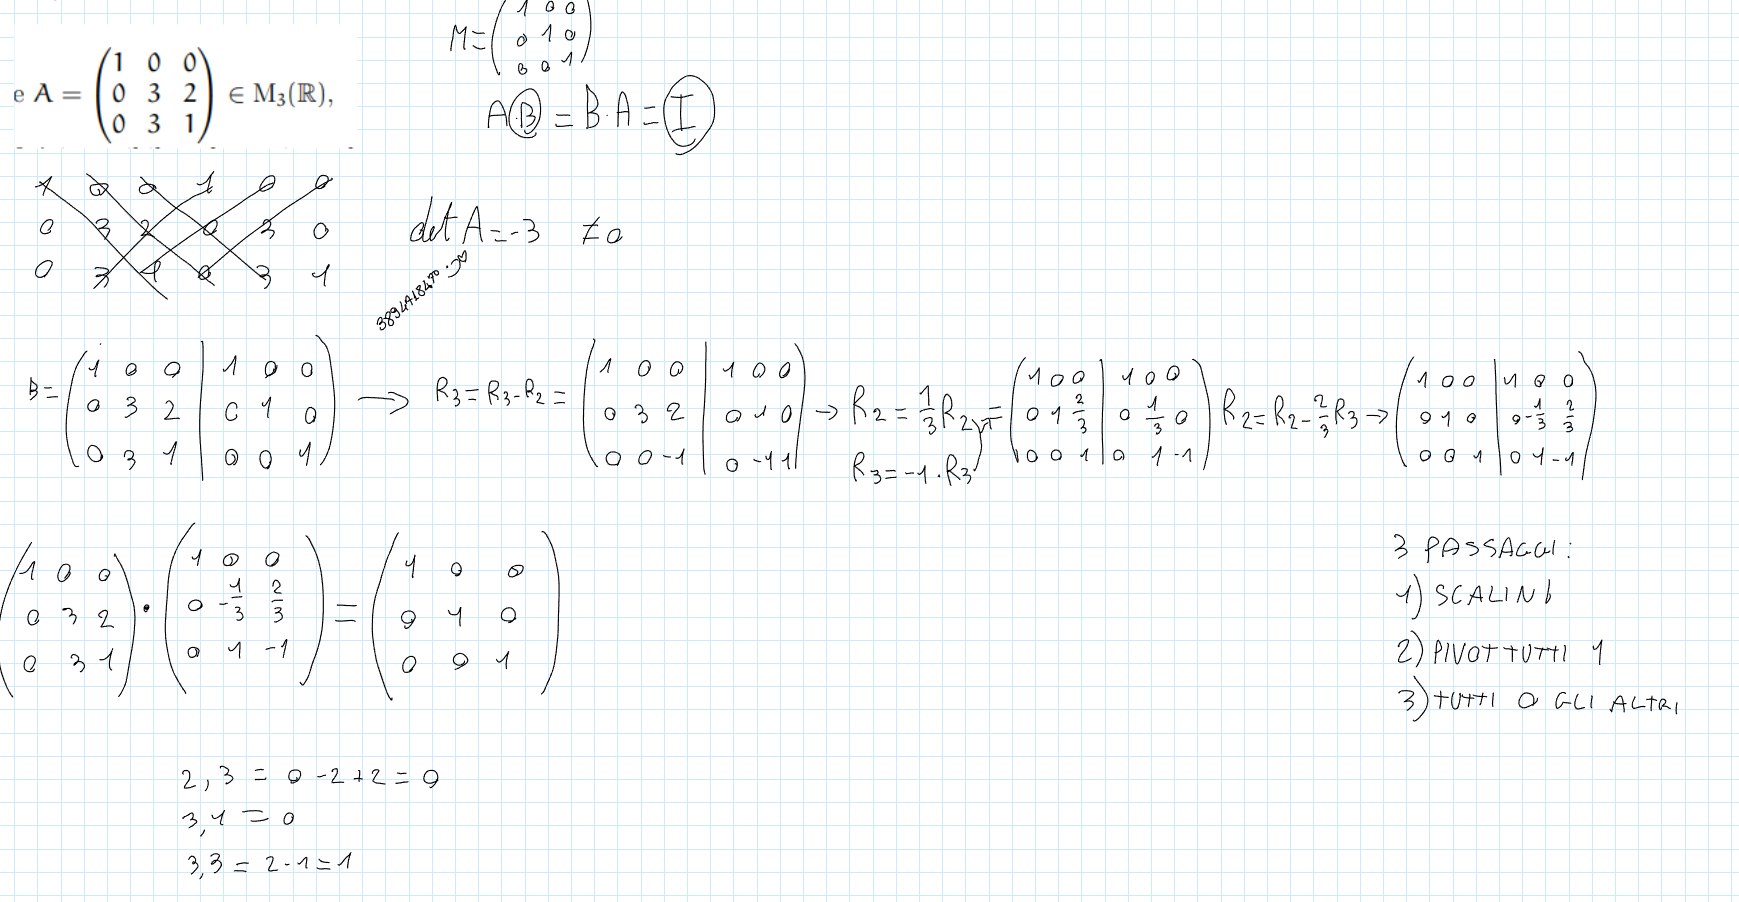 M = ( 1 0 0
0 1 0
0 0 1 )
e A = ( 1 0 0
0 3 2
0 3 1 ) ∈ M₃(ℝ),
A·B = B·A = I
1 0 0 1 0 0
0 3 2 0 3 0
0 3 1 0 3 1
det A = -3 ≠ 0
B = ( 1 0 0 | 1 0 0
0 3 2 | 0 1 0
0 3 1 | 0 0 1 )
→ R₃ = R₃ - R₂ =
( 1 0 0 | 1 0 0
0 3 2 | 0 1 0
0 0 -1 | 0 -1 1 )
→ R₂ = 1/3 R₂
R₃ = -1 · R₃
= ( 1 0 0 | 1 0 0
0 1 2/3 | 0 1/3 0
0 0 1 | 0 1 -1 )
R₂ = R₂ - 2/3 R₃ →
( 1 0 0 | 1 0 0
0 1 0 | 0 -1/3 2/3
0 0 1 | 0 1 -1 )
( 1 0 0
0 3 2
0 3 1 )
·
( 1 0 0
0 -1/3 2/3
0 1 -1 )
=
( 1 0 0
0 1 0
0 0 1 )
3 PASSAGGI:
1) SCALINI
2) PIVOT TUTTI 1
3) TUTTI 0 GLI ALTRI
2,3 = 0 -2 + 2 = 0
3,1 = 0
3,3 = 2 - 1 = 1